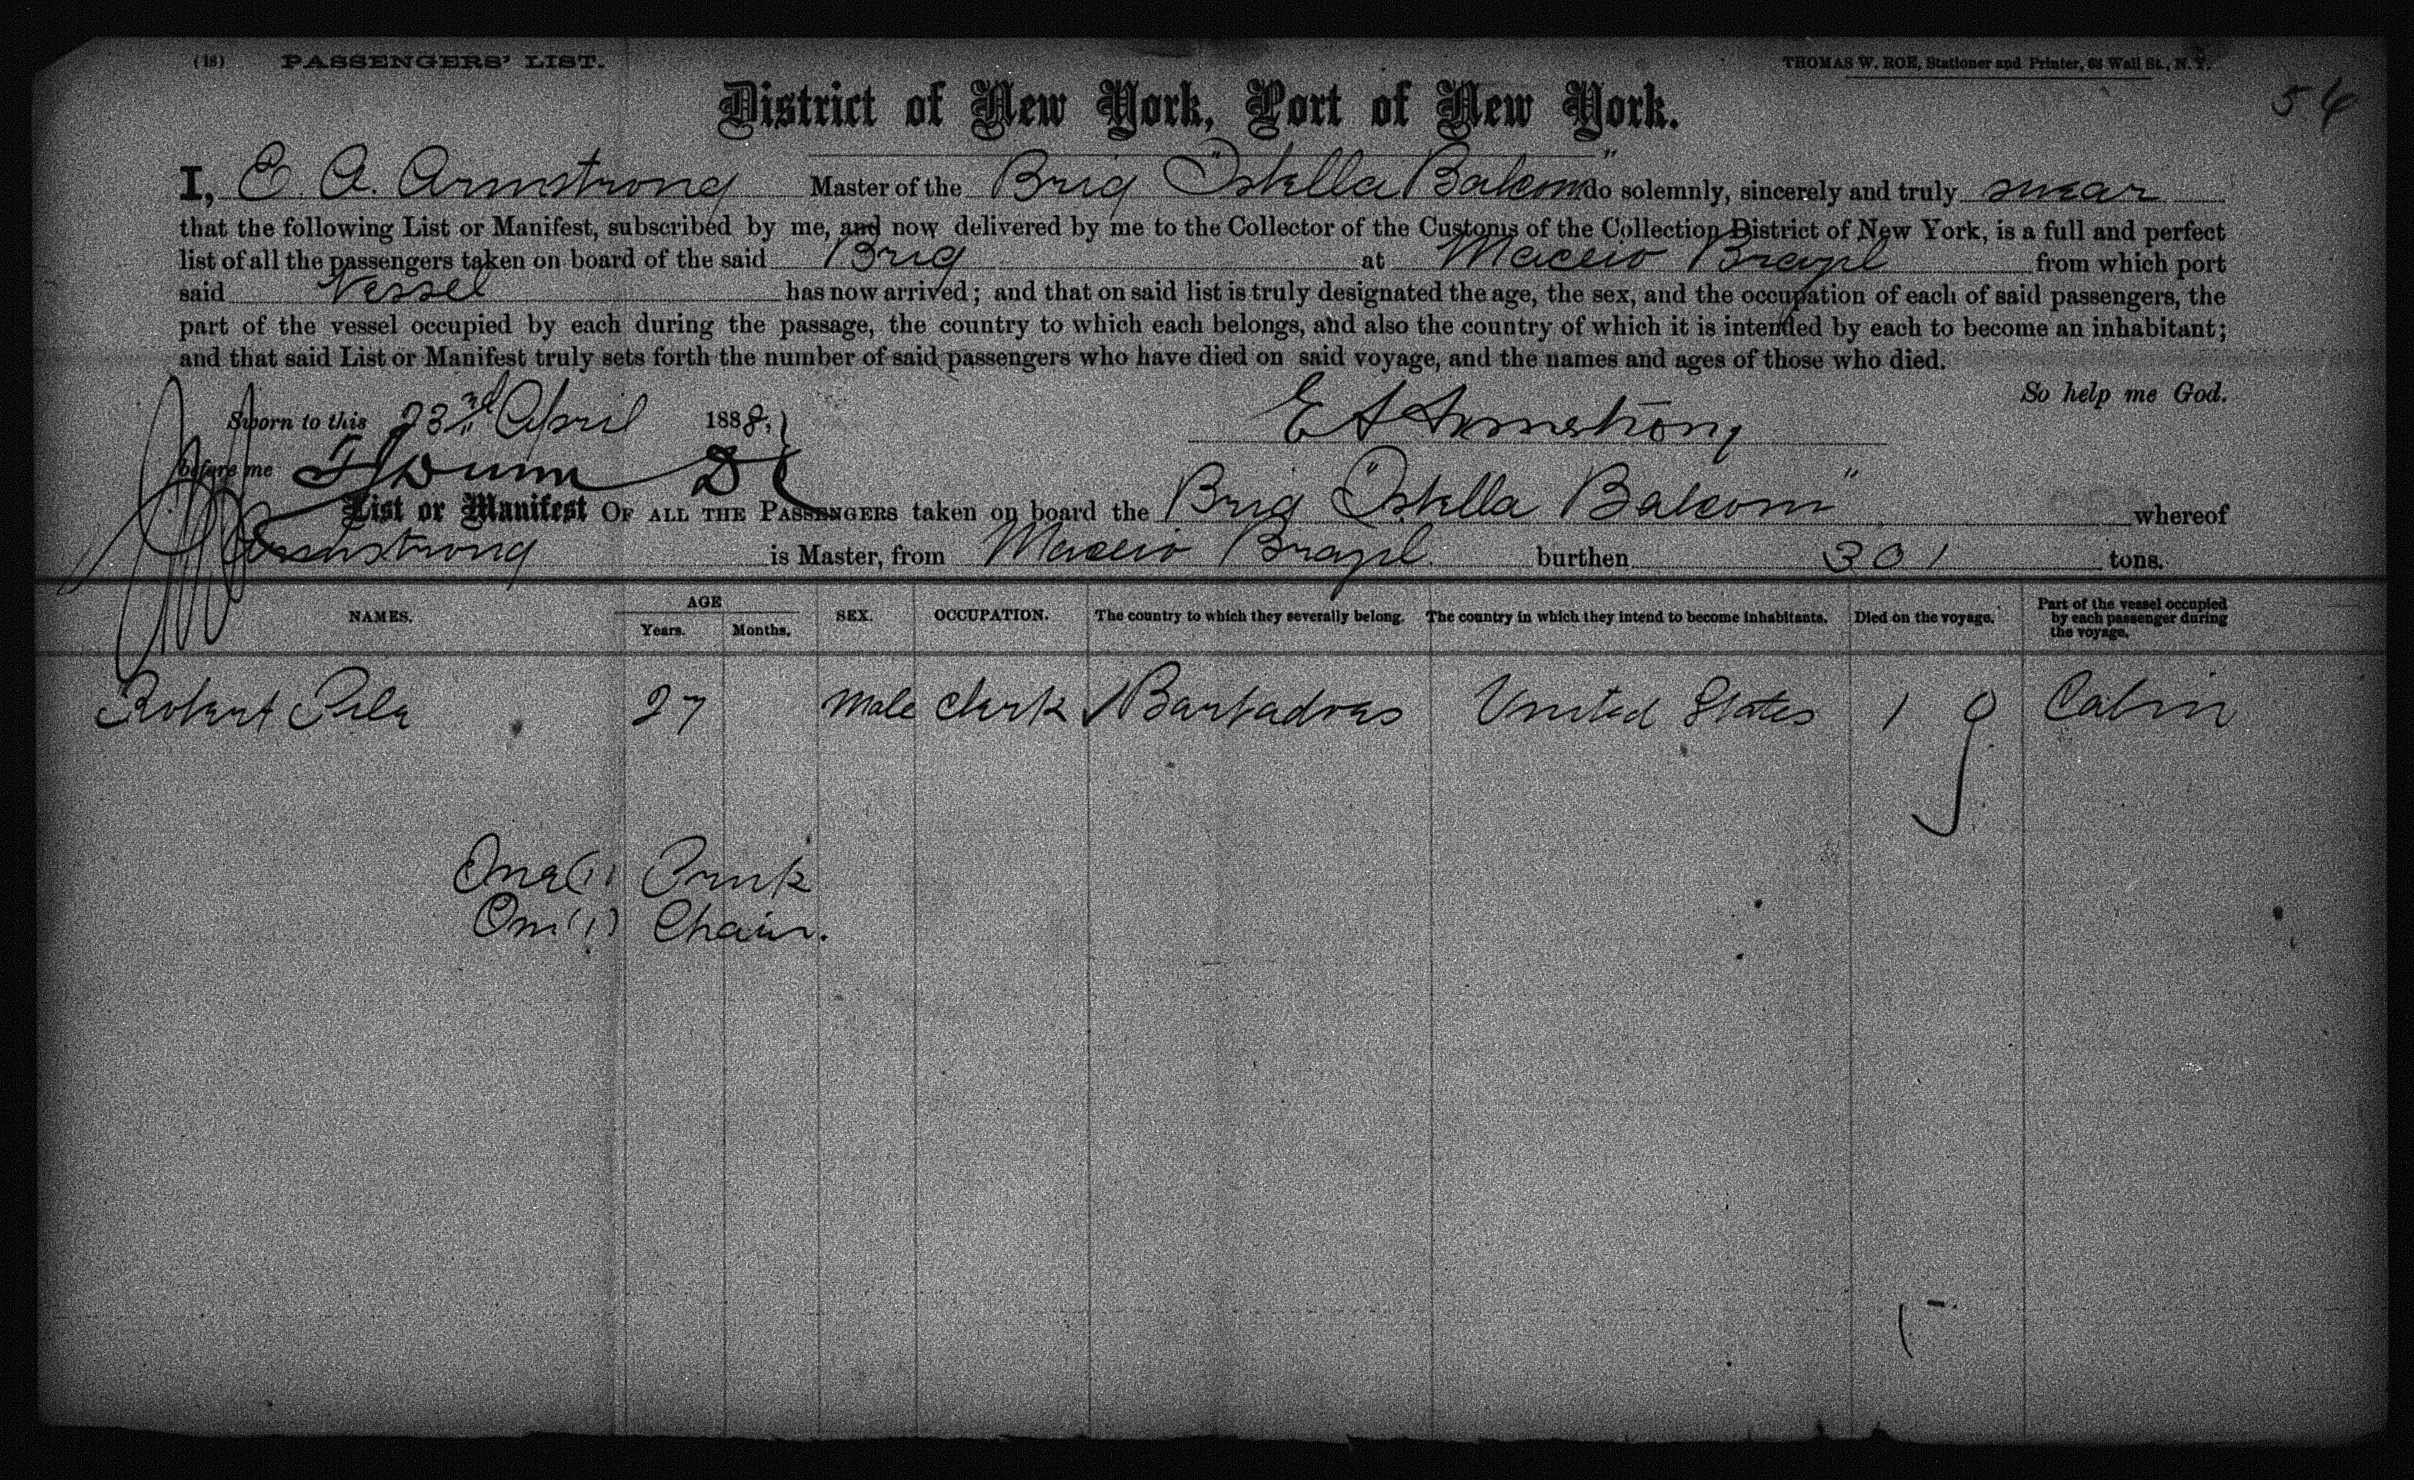 (18) PASSENGERS' LIST. THOMAS W. ROE, Stationer and Printer, 63 Wall St., N.Y.
54
District of New York, Port of New York.
I, E. A. Armstrong Master of the Brig "Estella Balcom" do solemnly, sincerely and truly swear
that the following List or Manifest, subscribed by me, and now delivered by me to the Collector of the Customs of the Collection District of New York, is a full and perfect
list of all the passengers taken on board of the said Brig at Maceio Brazil from which port
said Vessel has now arrived; and that on said list is truly designated the age, the sex, and the occupation of each of said passengers, the
part of the vessel occupied by each during the passage, the country to which each belongs, and also the country of which it is intended by each to become an inhabitant;
and that said List or Manifest truly sets forth the number of said passengers who have died on said voyage, and the names and ages of those who died.
So help me God.
Sworn to this 23rd April 1888, E A Armstrong
before me Dunn
List or Manifest OF ALL THE PASSENGERS taken on board the Brig "Estella Balcom" whereof
Armstrong is Master, from Maceio Brazil burthen 301 tons.
NAMES. AGE Years. Months. SEX. OCCUPATION. The country to which they severally belong. The country in which they intend to become inhabitants. Died on the voyage. Part of the vessel occupied by each passenger during the voyage.
Robert 27 Male Clerk Barbadoes United States 1 Cabin
One (1)
One (1) Chair.